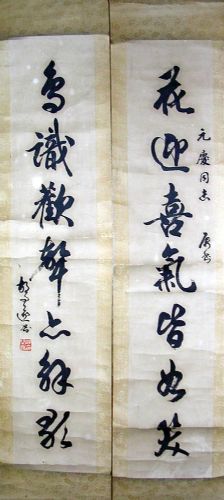 花迎喜氣皆如笑
元慶同志
鳥識歡聲亦解歌